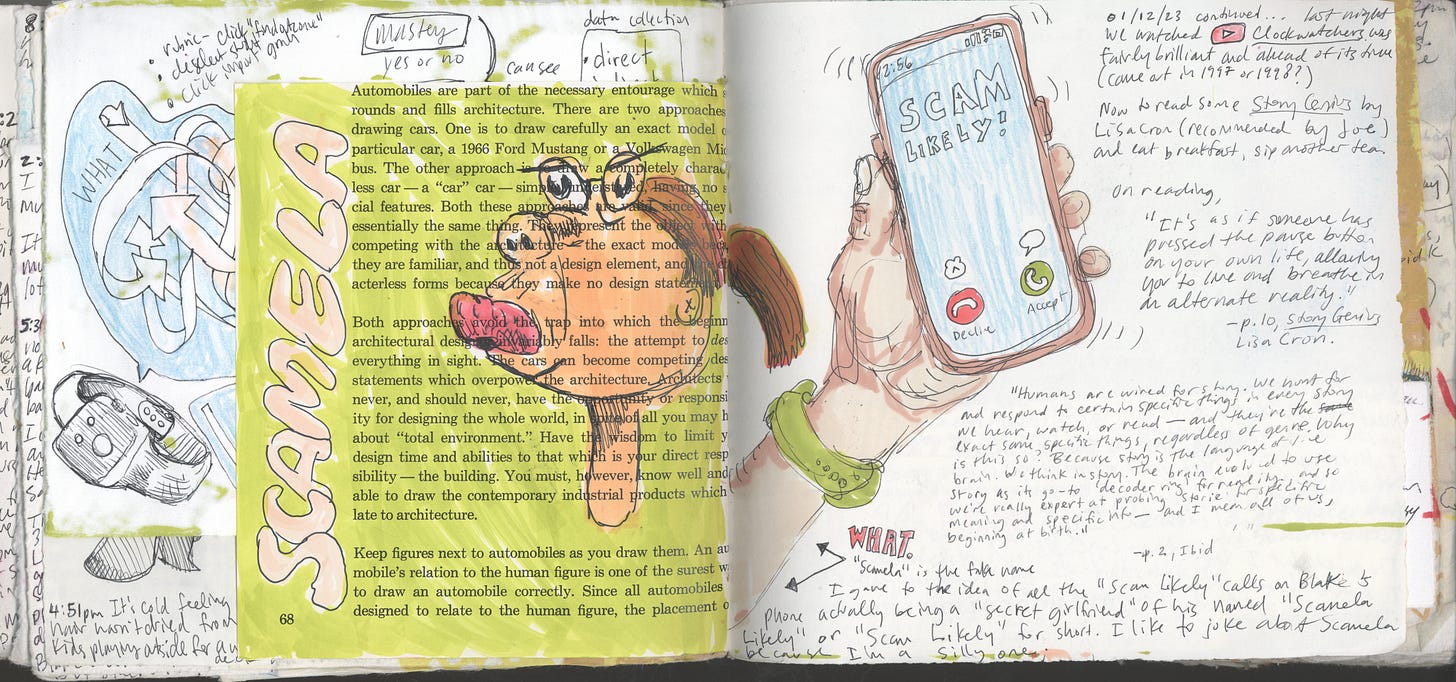 • rubric - click "find outcome"
• deselect start
• click import grab
mastery
yes or no
can see
data collection
• direct
WHAT
SCAMELA
Automobiles are part of the necessary entourage which s
rounds and fills architecture. There are two approaches
drawing cars. One is to draw carefully an exact model o
particular car, a 1966 Ford Mustang or a Volkswagen Mic
bus. The other approach is to draw a completely charac
less car — a "car" car — simply understood, having no s
cial features. Both these approaches are valid, since they
essentially the same thing. They represent the object with
competing with the architecture — the exact models beca
they are familiar, and thus not a design element, and
acterless forms because they make no design statement.
Both approaches avoid the trap into which the beginn
architectural designer invariably falls: the attempt to des
everything in sight. The cars can become competing des
statements which overpower the architecture. Architects
never, and should never, have the opportunity or responsi
ity for designing the whole world, in spite of all you may h
about "total environment." Have the wisdom to limit y
design time and abilities to that which is your direct resp
sibility — the building. You must, however, know well and
able to draw the contemporary industrial products which
late to architecture.
Keep figures next to automobiles as you draw them. An au
mobile's relation to the human figure is one of the surest w
to draw an automobile correctly. Since all automobiles
designed to relate to the human figure, the placement o
68
4:51pm It's cold feeling
hair hasn't dried from
Kids playing outside for a
2:56
SCAM
LIKELY!
Decline
Accept
01/12/23 continued... last night
we watched Clockwatchers, was
fairly brilliant and ahead of its time
(came out in 1997 or 1998?)
Now to read some Story Genius by
Lisa Cron (recommended by Joe)
and eat breakfast, sip another tea.
On reading,
"It's as if someone has
pressed the pause button
on your own life, allowing
you to live and breathe in
an alternate reality."
-p.10, Story Genius
Lisa Cron.
"Humans are wired for story. We hunt for
and respond to certain specific things in every story
we hear, watch, or read — and they're the
exact same specific things, regardless of genre. Why
is this so? Because story is the language of the
brain. We think in story. The brain evolved to use
story as its go-to "decoder ring" for reality, and so
we're really expert at probing stories for specific
meaning and specific info — and I mean all of us,
beginning at birth."
-p.2, Ibid
WHAT.
"Scamela" is the fake name
I gave to the idea of all the "Scam Likely" calls on Blake's
phone actually being a "secret girlfriend" of his named "Scamela
Likely" or "Scam Likely" for short. I like to joke about Scamela
because I'm a silly one;